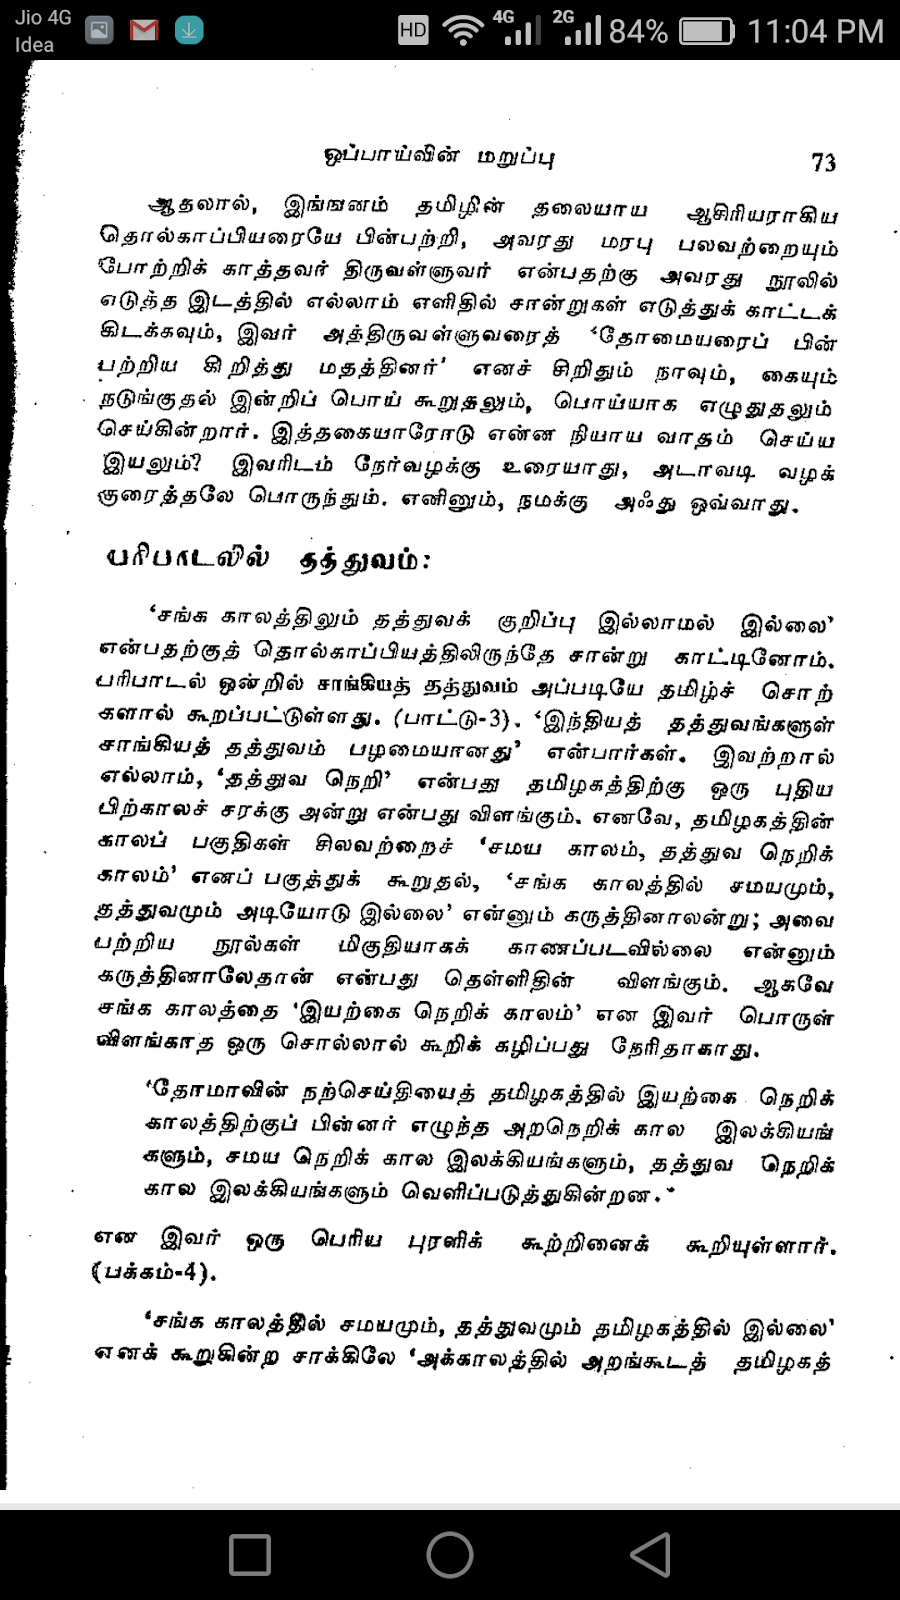 Jio 4G
Idea
HD
4G
2G
84%
11:04 PM
ஒப்பாய்வின் மறுப்பு
73
ஆதலால், இங்ஙனம் தமிழின் தலையாய ஆசிரியராகிய
தொல்காப்பியரையே பின்பற்றி, அவரது மரபு பலவற்றையும்
போற்றிக் காத்தவர் திருவள்ளுவர் என்பதற்கு அவரது நூலில்
எடுத்த இடத்தில் எல்லாம் எளிதில் சான்றுகள் எடுத்துக் காட்டக்
கிடக்கவும், இவர் அத்திருவள்ளுவரைத் ‘தோமையரைப் பின்
பற்றிய கிறித்து மதத்தினர்’ எனச் சிறிதும் நாவும், கையும்
நடுங்குதல் இன்றிப் பொய் கூறுதலும், பொய்யாக எழுதுதலும்
செய்கின்றார். இத்தகையாரோடு என்ன நியாய வாதம் செய்ய
இயலும்? இவரிடம் நேர்வழக்கு உரையாது, அடாவடி வழக்
குரைத்தலே பொருந்தும். எனினும், நமக்கு அஃது ஒவ்வாது.
பரிபாடலில் தத்துவம்:
‘சங்க காலத்திலும் தத்துவக் குறிப்பு இல்லாமல் இல்லை’
என்பதற்குத் தொல்காப்பியத்திலிருந்தே சான்று காட்டினோம்.
பரிபாடல் ஒன்றில் சாங்கியத் தத்துவம் அப்படியே தமிழ்ச் சொற்
களால் கூறப்பட்டுள்ளது. (பாட்டு-3). ‘இந்தியத் தத்துவங்களுள்
சாங்கியத் தத்துவம் பழமையானது’ என்பார்கள். இவற்றால்
எல்லாம், ‘தத்துவ நெறி’ என்பது தமிழகத்திற்கு ஒரு புதிய
பிற்காலச் சரக்கு அன்று என்பது விளங்கும். எனவே, தமிழகத்தின்
காலப் பகுதிகள் சிலவற்றைச் ‘சமய காலம், தத்துவ நெறிக்
காலம்’ எனப் பகுத்துக் கூறுதல், ‘சங்க காலத்தில் சமயமும்,
தத்துவமும் அடியோடு இல்லை’ என்னும் கருத்தினாலன்று; அவை
பற்றிய நூல்கள் மிகுதியாகக் காணப்படவில்லை என்னும்
கருத்தினாலேதான் என்பது தெள்ளிதின் விளங்கும். ஆகவே
சங்க காலத்தை ‘இயற்கை நெறிக் காலம்’ என இவர் பொருள்
விளங்காத ஒரு சொல்லால் கூறிக் கழிப்பது நேரிதாகாது.
‘தோமாவின் நற்செய்தியைத் தமிழகத்தில் இயற்கை நெறிக்
காலத்திற்குப் பின்னர் எழுந்த அறநெறிக் கால இலக்கியங்
களும், சமய நெறிக் கால இலக்கியங்களும், தத்துவ நெறிக்
கால இலக்கியங்களும் வெளிப்படுத்துகின்றன.’
என இவர் ஒரு பெரிய புரளிக் கூற்றினைக் கூறியுள்ளார்.
(பக்கம்-4).
‘சங்க காலத்தில் சமயமும், தத்துவமும் தமிழகத்தில் இல்லை’
எனக் கூறுகின்ற சாக்கிலே ‘அக்காலத்தில் அறங்கூடத் தமிழகத்